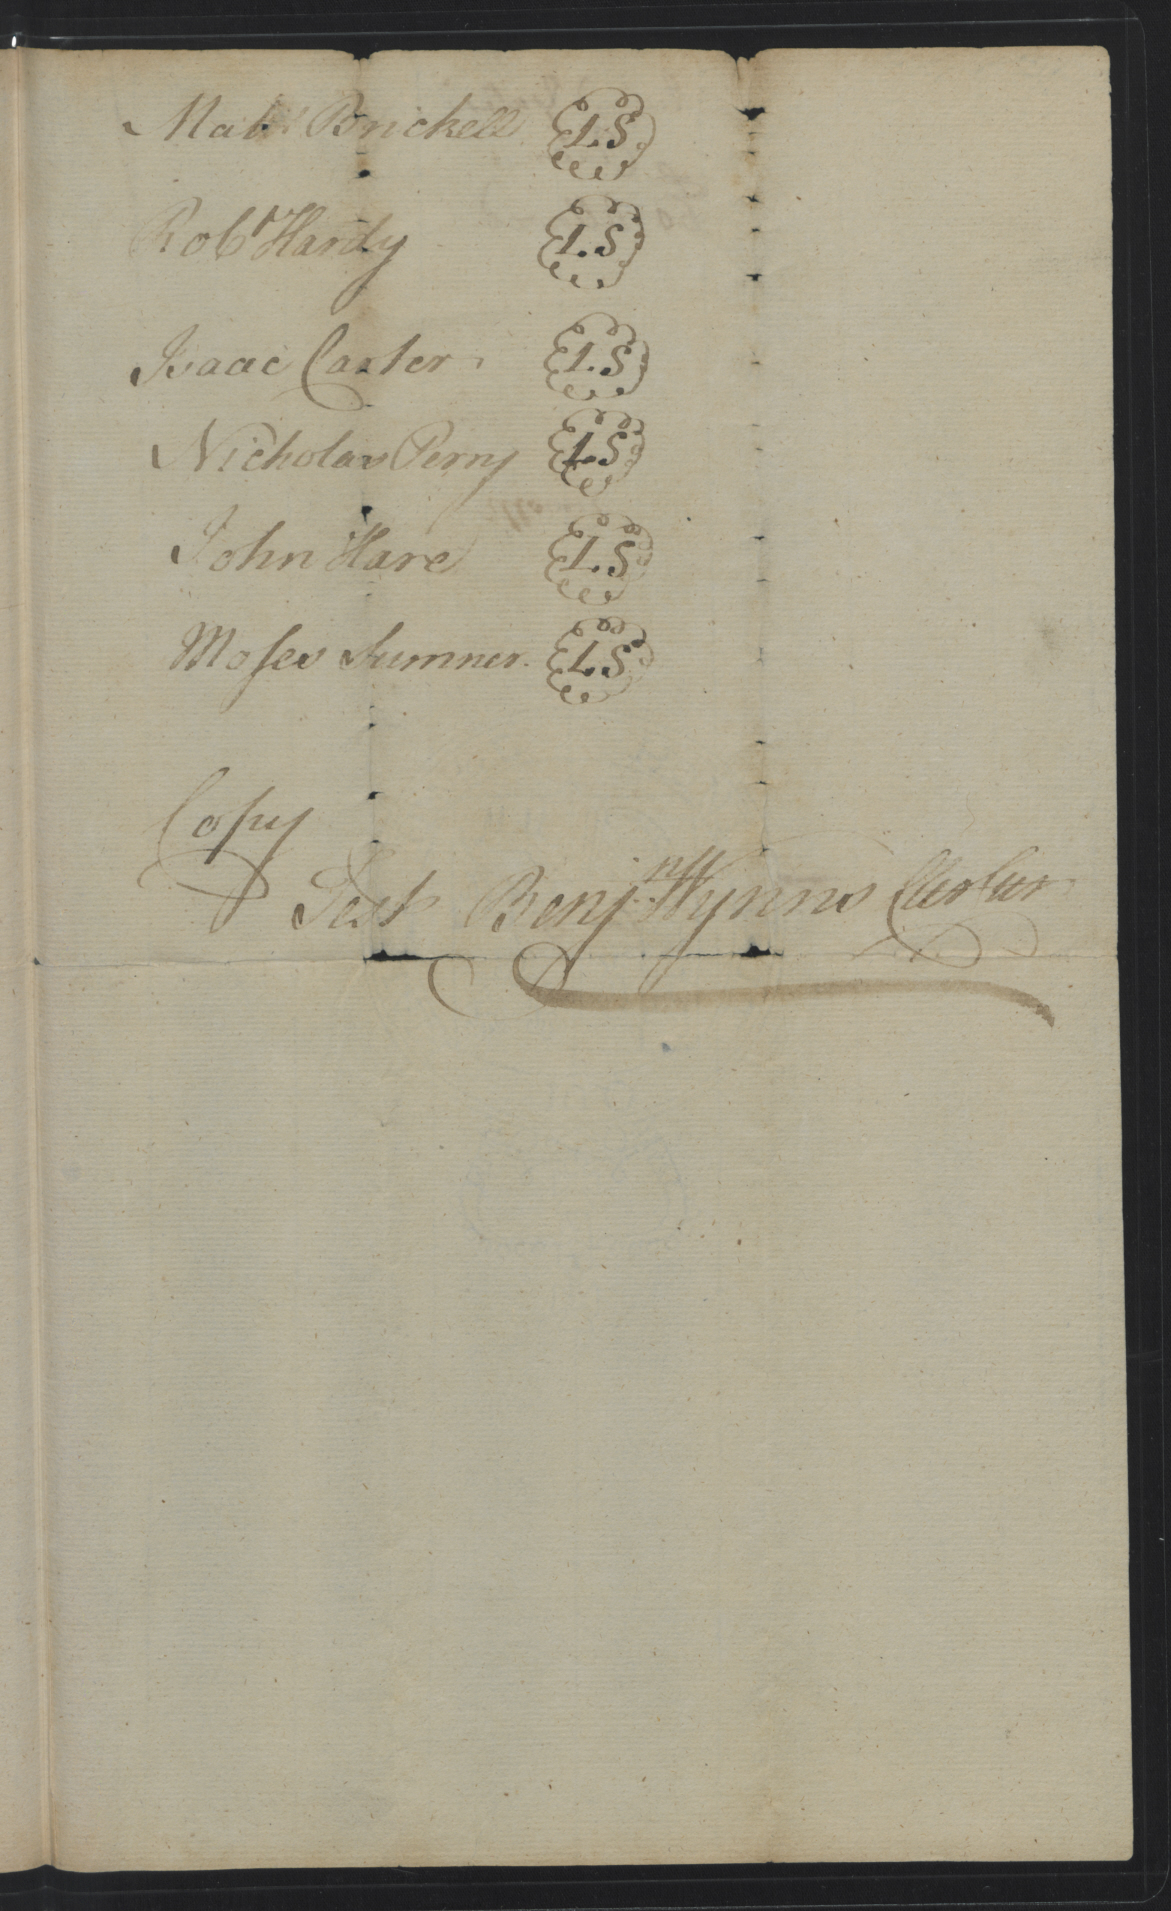 Mat.ʷ Brickell L.S
Rob.ᵗ Hardy L.S
Isaac Carter L.S
Nicholas Perry L.S
John Hare L.S
Moses Sumner L.S
Copy
Test Benj.ⁿ Wynns Cler Cur